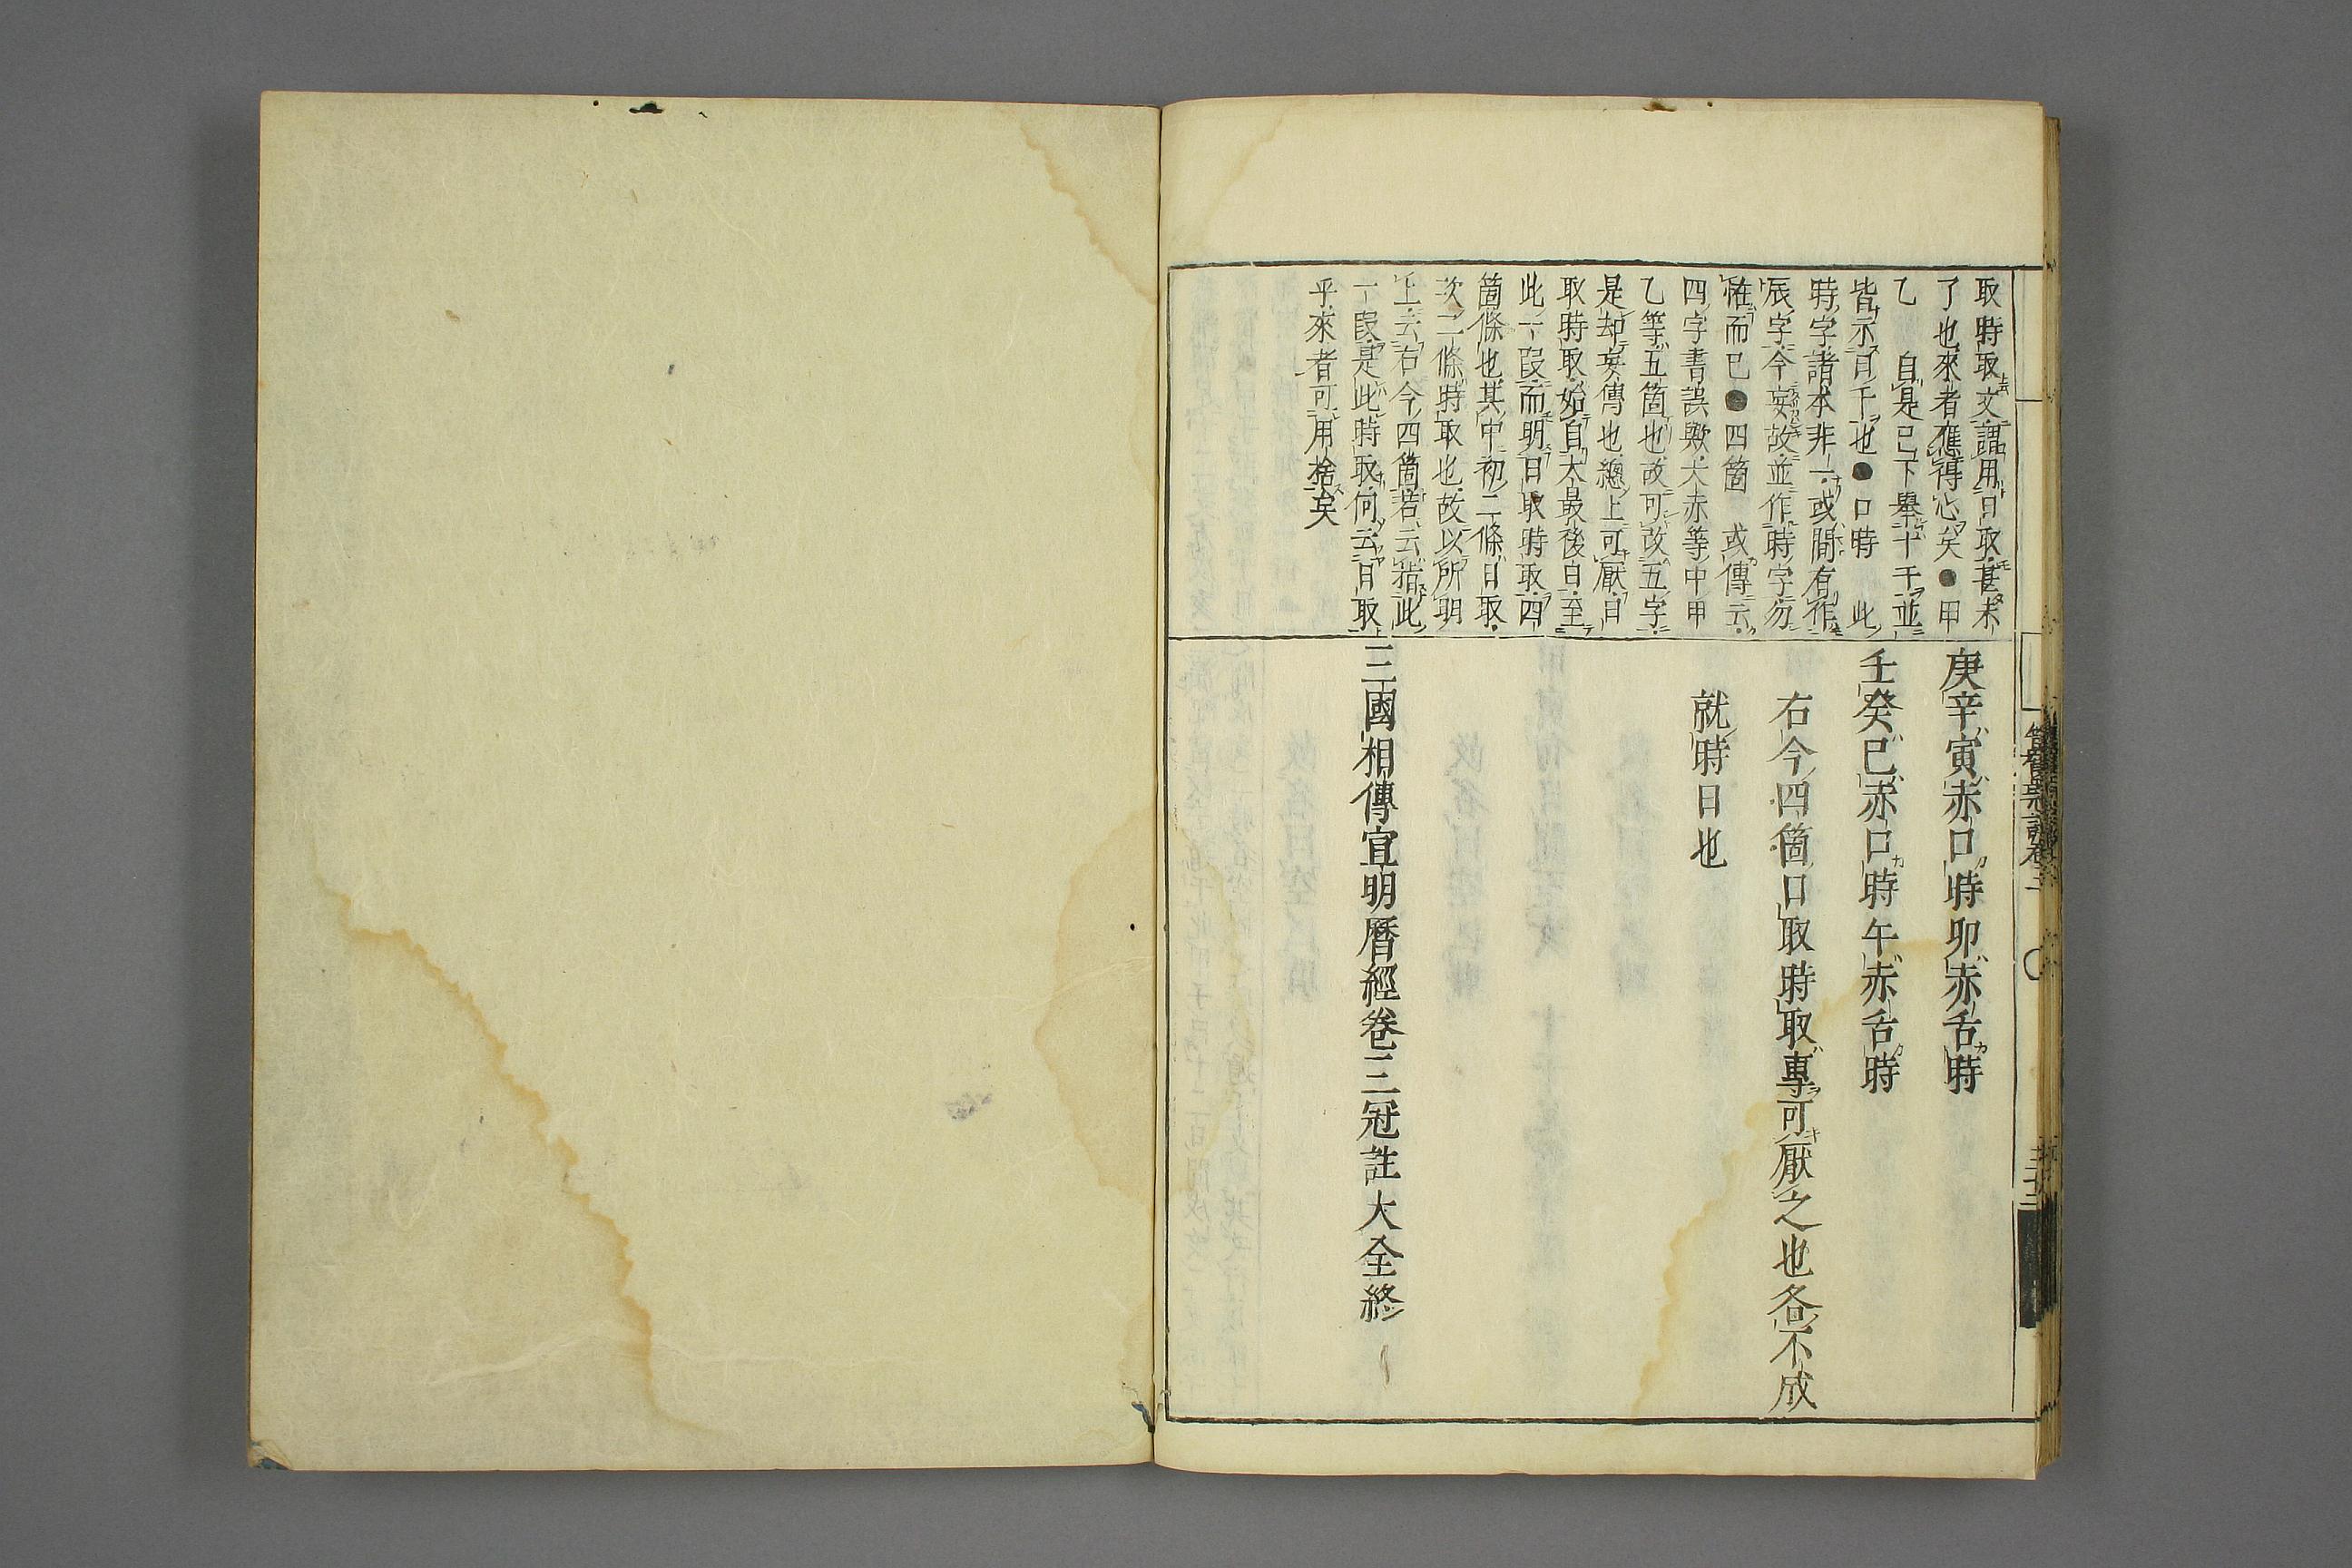 取時取文謂用日取甚未
了也來者應得心矣●甲
乙 自是已下舉十干並
皆示日干也●口時 此
時字諸本非一或間有作
辰字今妄故並作時字勿
惟而已●四箇 或傳云
四字書誤歟大赤等中甲
乙等五箇也故可改五字
是却妄傳也總上可厭日
取時取始自大最後日至
此一段而明日取時取四
箇條也其中初二條日取
次二條時取也故以所明
上云右今四箇若云指此
一段是此時取何云日取
乎來者可用捨矣
庚辛寅赤口時卯赤舌時
壬癸巳赤口時午赤舌時
右今四箇日取時取專可厭之也各不成
就時日也
三國相傳宣明曆經卷三冠註大全終